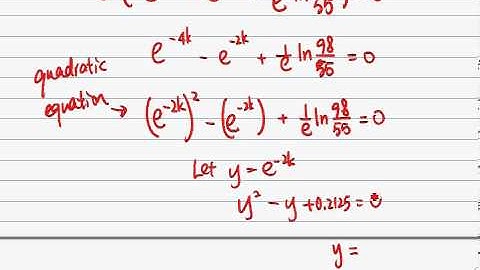 e ln 98/55
e^{-4k} - e^{-2k} + 1/e ln 98/55 = 0
quadratic
equation → (e^{-2k})^2 - (e^{-2k}) + 1/e ln 98/55 = 0
Let y = e^{-2k}
y^2 - y + 0.2125 = 0
y =